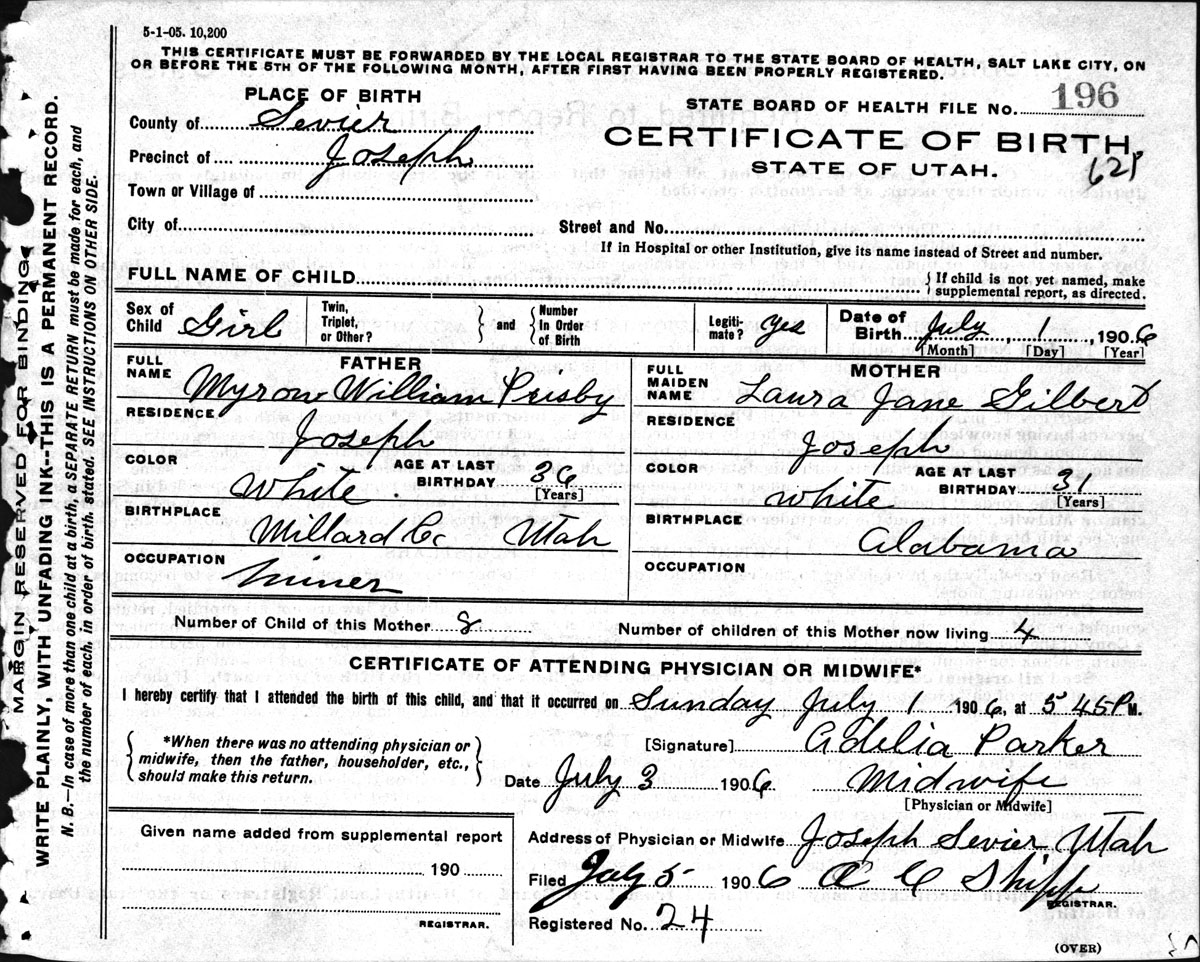 5-1-05. 10,200
THIS CERTIFICATE MUST BE FORWARDED BY THE LOCAL REGISTRAR TO THE STATE BOARD OF HEALTH, SALT LAKE CITY, ON
OR BEFORE THE 5TH OF THE FOLLOWING MONTH, AFTER FIRST HAVING BEEN PROPERLY REGISTERED.
PLACE OF BIRTH
STATE BOARD OF HEALTH FILE No. 196
County of Sevier
CERTIFICATE OF BIRTH,
Precinct of Joseph
STATE OF UTAH.
Town or Village of
City of
Street and No.
If in Hospital or other Institution, give its name instead of Street and number.
FULL NAME OF CHILD
If child is not yet named, make
supplemental report, as directed.
Sex of Child Girl
Twin, Triplet, or Other?
and
Number In Order of Birth
Legitimate? yes
Date of Birth July 1, 1906
[Month] [Day] [Year]
FATHER
FULL NAME Myron William Presby
RESIDENCE
Joseph
COLOR White
AGE AT LAST BIRTHDAY 36
[Years]
BIRTHPLACE Millard Co Utah
OCCUPATION Miner
MOTHER
FULL MAIDEN NAME Laura Jane Gilbert
RESIDENCE Joseph
COLOR White
AGE AT LAST BIRTHDAY 31
[Years]
BIRTHPLACE Alabama
OCCUPATION
Number of Child of this Mother 8 Number of children of this Mother now living 4
CERTIFICATE OF ATTENDING PHYSICIAN OR MIDWIFE*
I hereby certify that I attended the birth of this child, and that it occurred on Sunday July 1 1906, at 5 45 P M.
*When there was no attending physician or
midwife, then the father, householder, etc.,
should make this return.
[Signature] Adelia Parker
Date July 3 1906 Midwife
[Physician or Midwife]
Given name added from supplemental report
190
REGISTRAR.
Address of Physician or Midwife Joseph Sevier Utah
Filed July 5 1906 A C Shipp
REGISTRAR.
Registered No. 24
(OVER)
MARGIN RESERVED FOR BINDING
WRITE PLAINLY, WITH UNFADING INK--THIS IS A PERMANENT RECORD.
N. B.—In case of more than one child at a birth, a SEPARATE RETURN must be made for each, and
the number of each, in order of birth, stated. SEE INSTRUCTIONS ON OTHER SIDE.